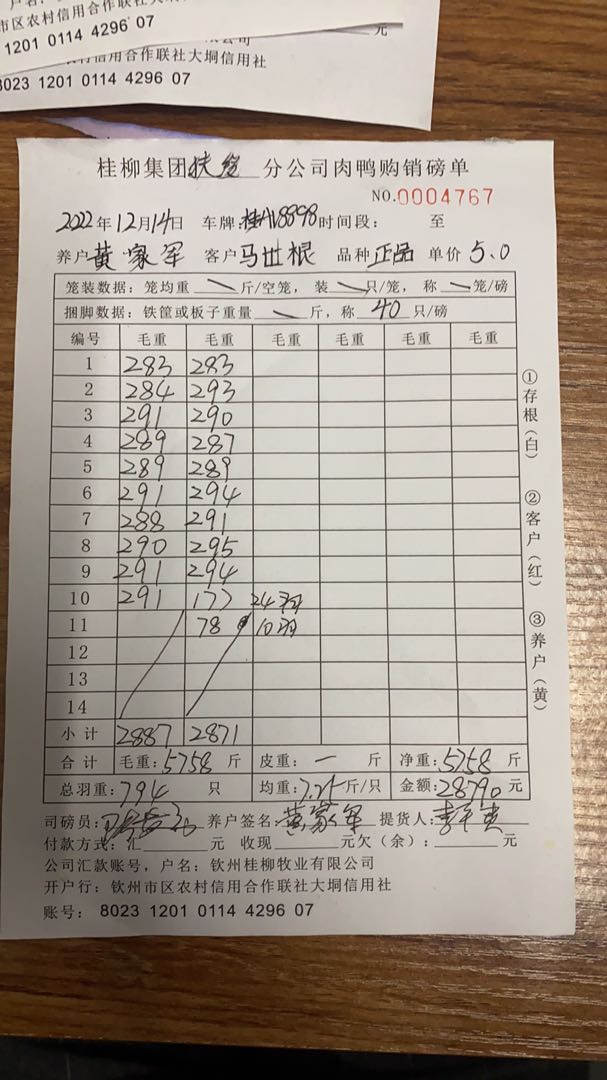 户名:
市区农村信用合作联社大垌信用社
1201 0114 4296 07
元
农村信用合作联社大垌信用社
8023 1201 0114 4296 07
桂柳集团 分公司肉鸭购销磅单
NO.0004767
2022年12月14日 车牌:桂AV8898 时间段: 至
养户黄家军 客户马世根 品种正品 单价5.0
笼装数据:笼均重 斤/空笼,装 只/笼,称 笼/磅
捆脚数据:铁筐或板子重量 斤,称 40 只/磅
编号 毛重 毛重 毛重 毛重 毛重 毛重
1 283 283
2 284 293
3 291 290
4 289 287
5 289 289
6 291 294
7 288 291
8 290 295
9 291 294
10 291 177 24羽
11 78 10羽
12
13
14
小计 2887 2871
合计 毛重:5758 斤 皮重:— 斤 净重:5758 斤
总羽重:794 只 均重:7.25斤/只 金额:28790元
司磅员: 养户签名:黄家军 提货人:
付款方式:汇 元 收现 元欠(余): 元
公司汇款账号,户名:钦州桂柳牧业有限公司
开户行:钦州市区农村信用合作联社大垌信用社
账号:8023 1201 0114 4296 07
①存根(白)
②客户(红)
③养户(黄)